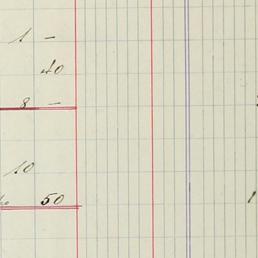 1 –
40
8 –
10
50
1